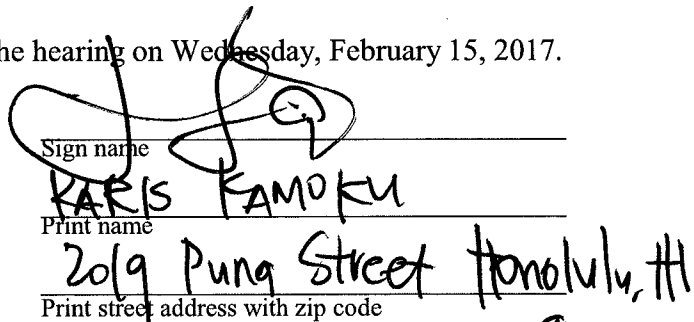 he hearing on Wednesday, February 15, 2017.
Sign name
KARIS KAMOKU
Print name
2019 Puna Street Honolulu, HI
Print street address with zip code